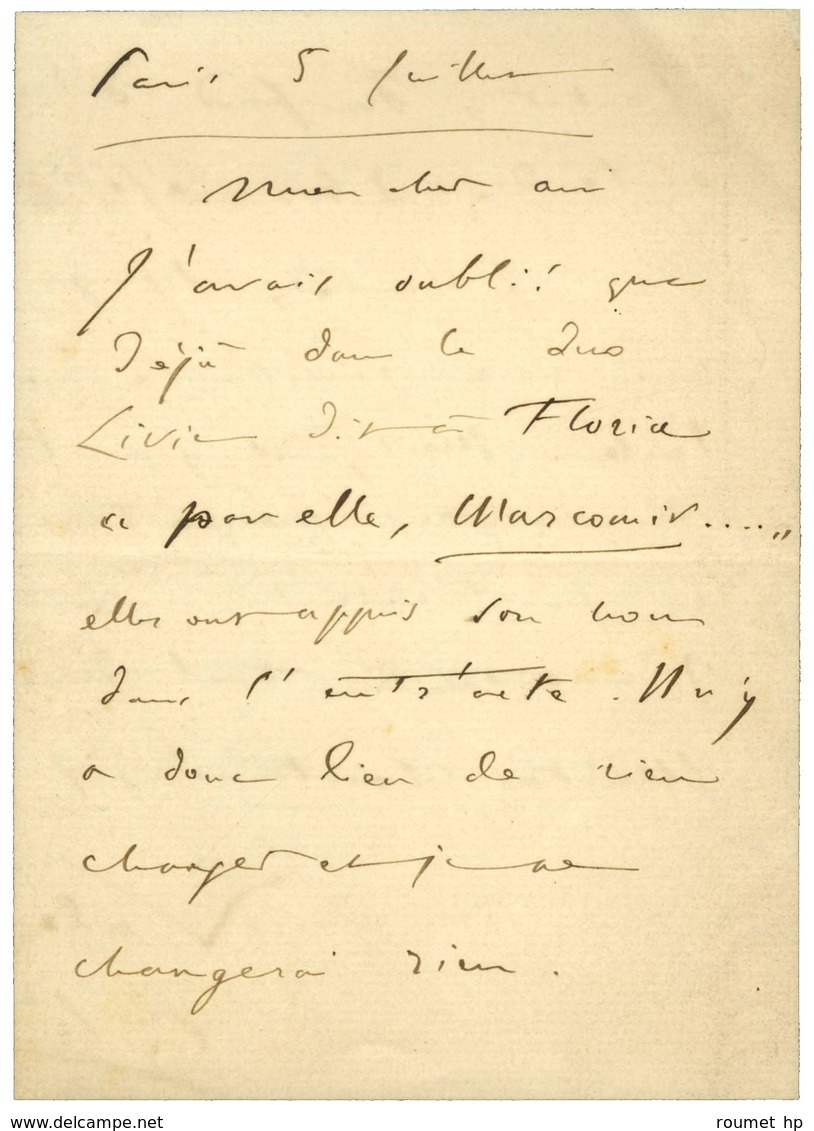 Paris 5 Juillet
Mon cher ami
J'avais oublié que
Déjà dans le duo
Livie dit à Floria
« par elle, Marcomir.... »
elles ont appris son nom
dans l'entr'acte. Il n'y
a donc lieu de rien
changer et je ne
changerai rien.
www.delcampe.net
roumet hp